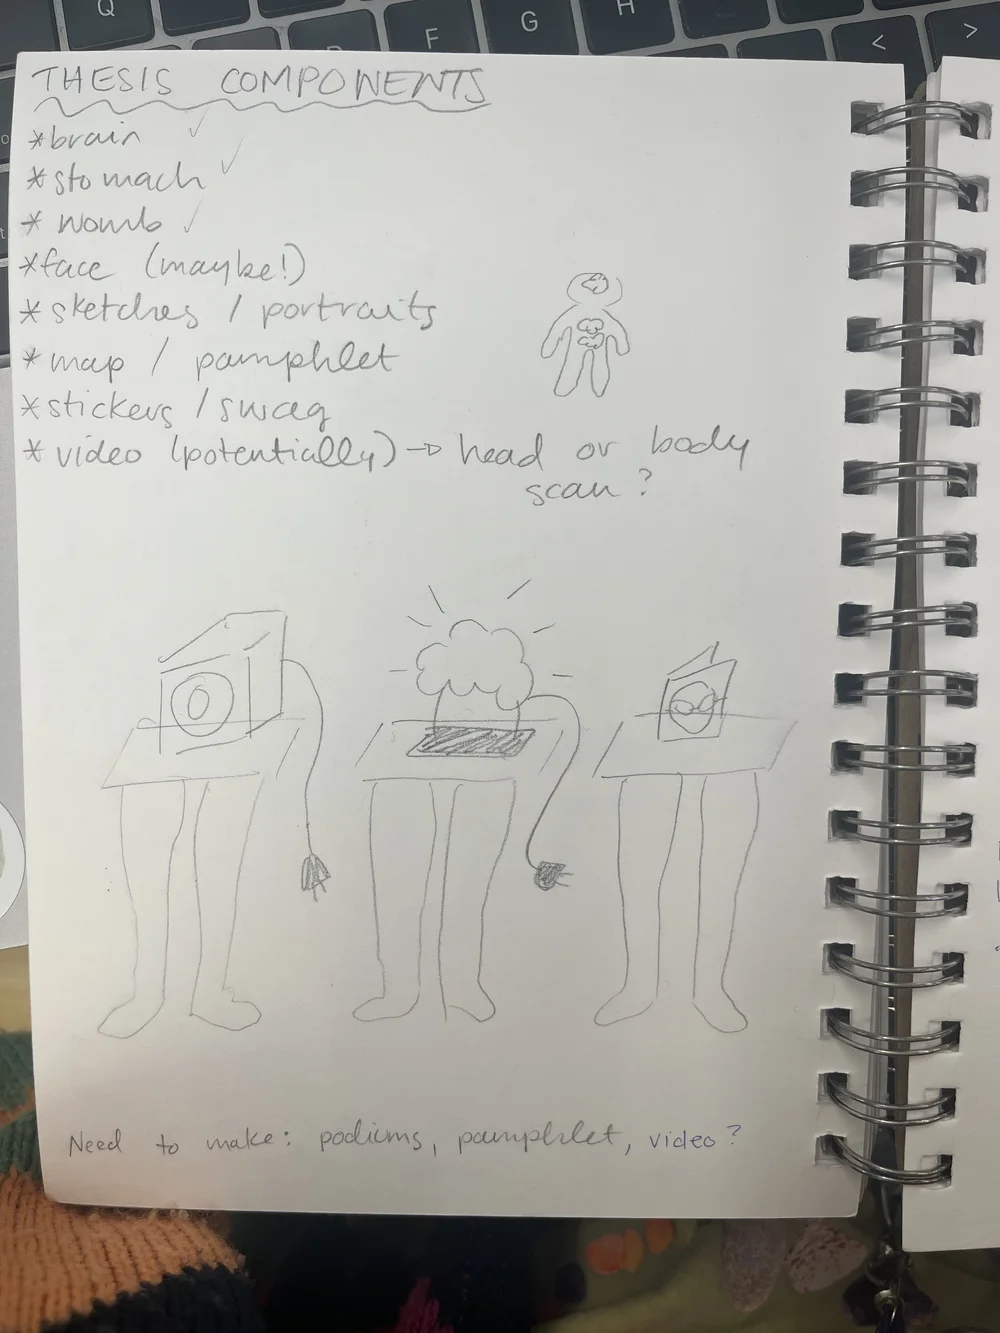 Q
F
G
H
<
>
THESIS COMPONENTS
*brain ✓
*stomach ✓
*womb ✓
*face (maybe!)
*sketches / portraits
*map / pamphlet
*stickers / swag
*video (potentially) → head or body
scan?
Need to make: podiums, pamphlet, video?